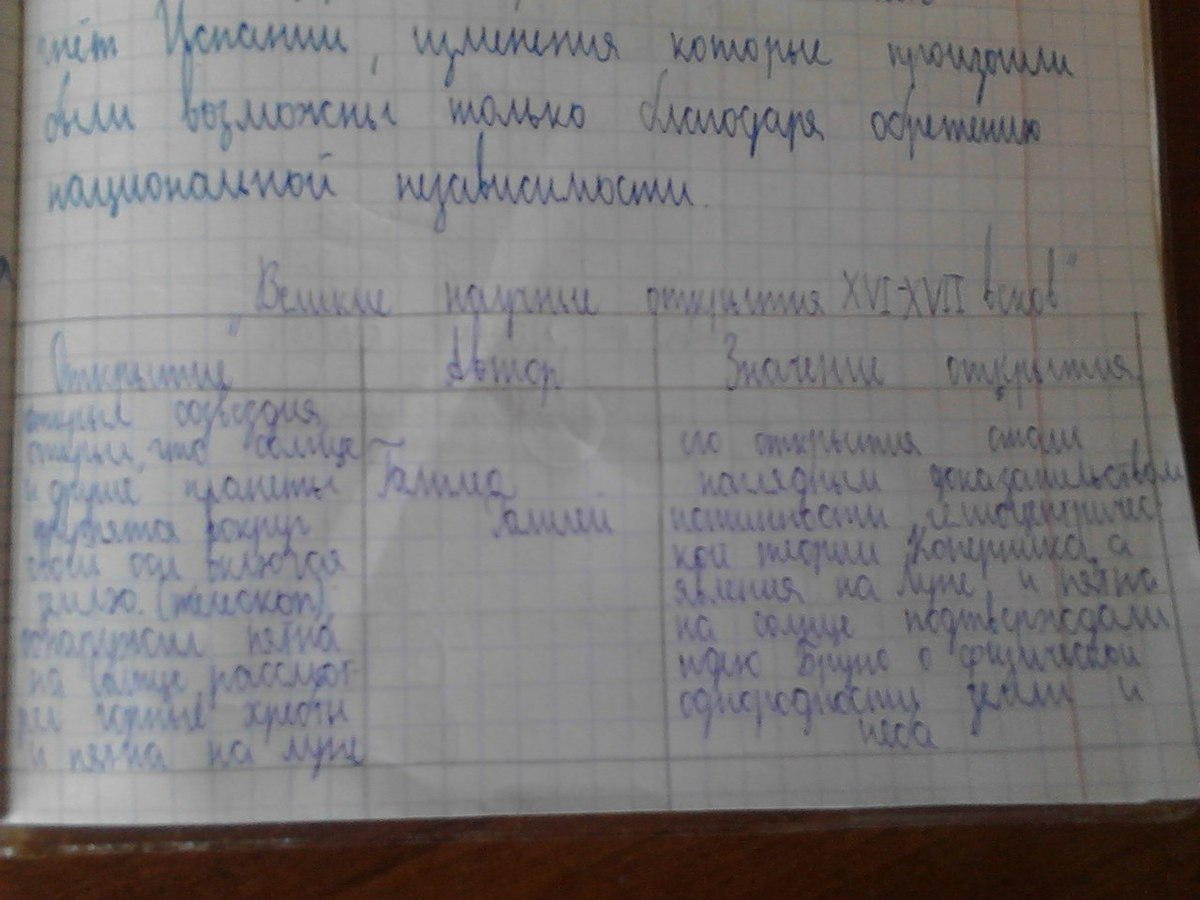 счёт Испании, изменения которые произошли
были возможны только благодаря обретению
национальной независимости.
"Великие научные открытия XVI-XVII веков"
Открытие Автор Значение открытия
открыл созвездия,
открыл, что солнце
и другие пранеты
вокруг
своей оси включая
землю. (телескоп),
обнаружил пятна
на солнце, рассмот-
рел горные хребты
и пятна на луне
Галилео
Галилей
его открытия стали
наглядным доказательством
истинности гелиоцентричес
кой теории Коперника, а
явления на Луне и пятна
на солнце подтверждали
идею Бруно о физической
однородности земли и
неба